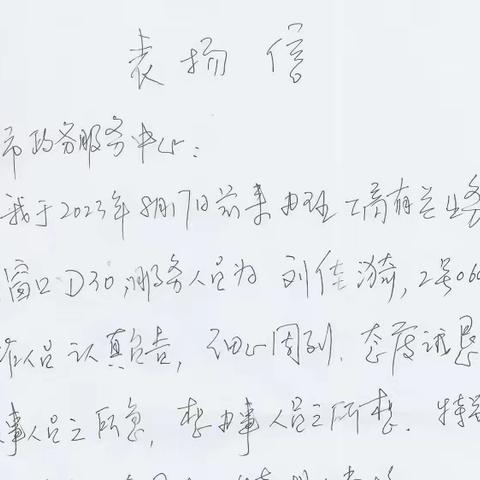 表扬信
市政务服务中心:
我于2023年8月17日前来办理工商有关业务
窗口D30,服务人员为刘佳漪,工号060
作人员认真负责,细心周到.态度诚恳
事人员之所急,想办事人员之所想.特